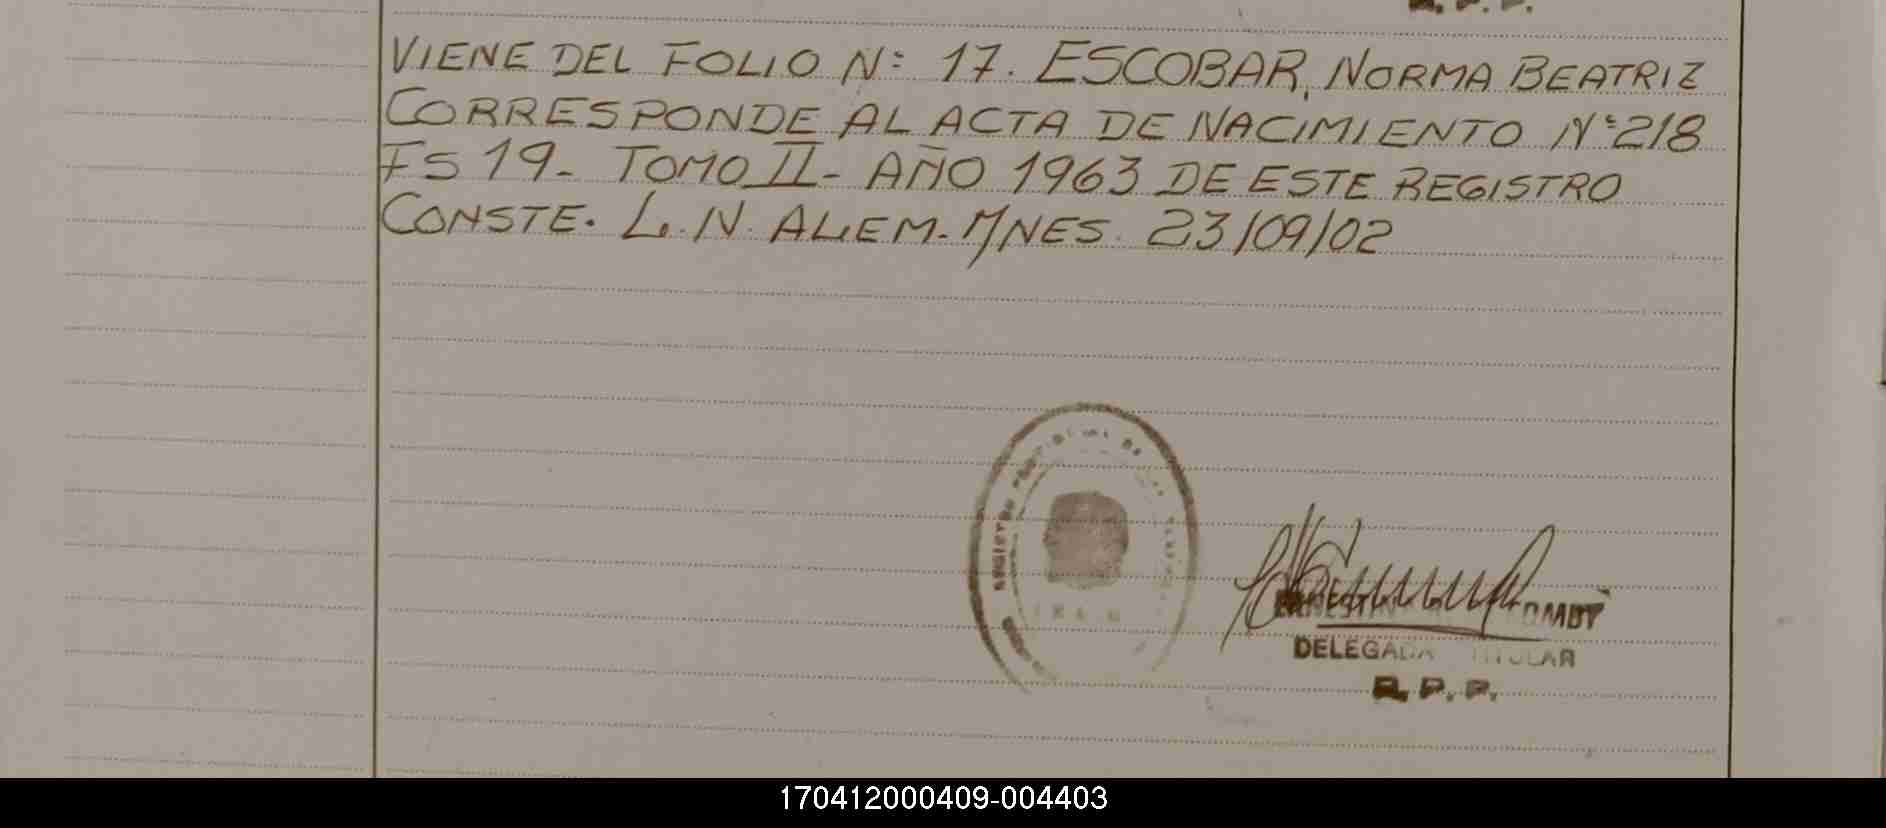 R. P. P.
VIENE DEL FOLIO Nº 17. ESCOBAR, NORMA BEATRIZ
CORRESPONDE AL ACTA DE NACIMIENTO Nº 218
FS 19 - TOMO II - AÑO 1963 DE ESTE REGISTRO
CONSTE. L. N. ALEM - MNES. 23/09/02
DELEGADA TITULAR
R. P. P.
170412000409-004403